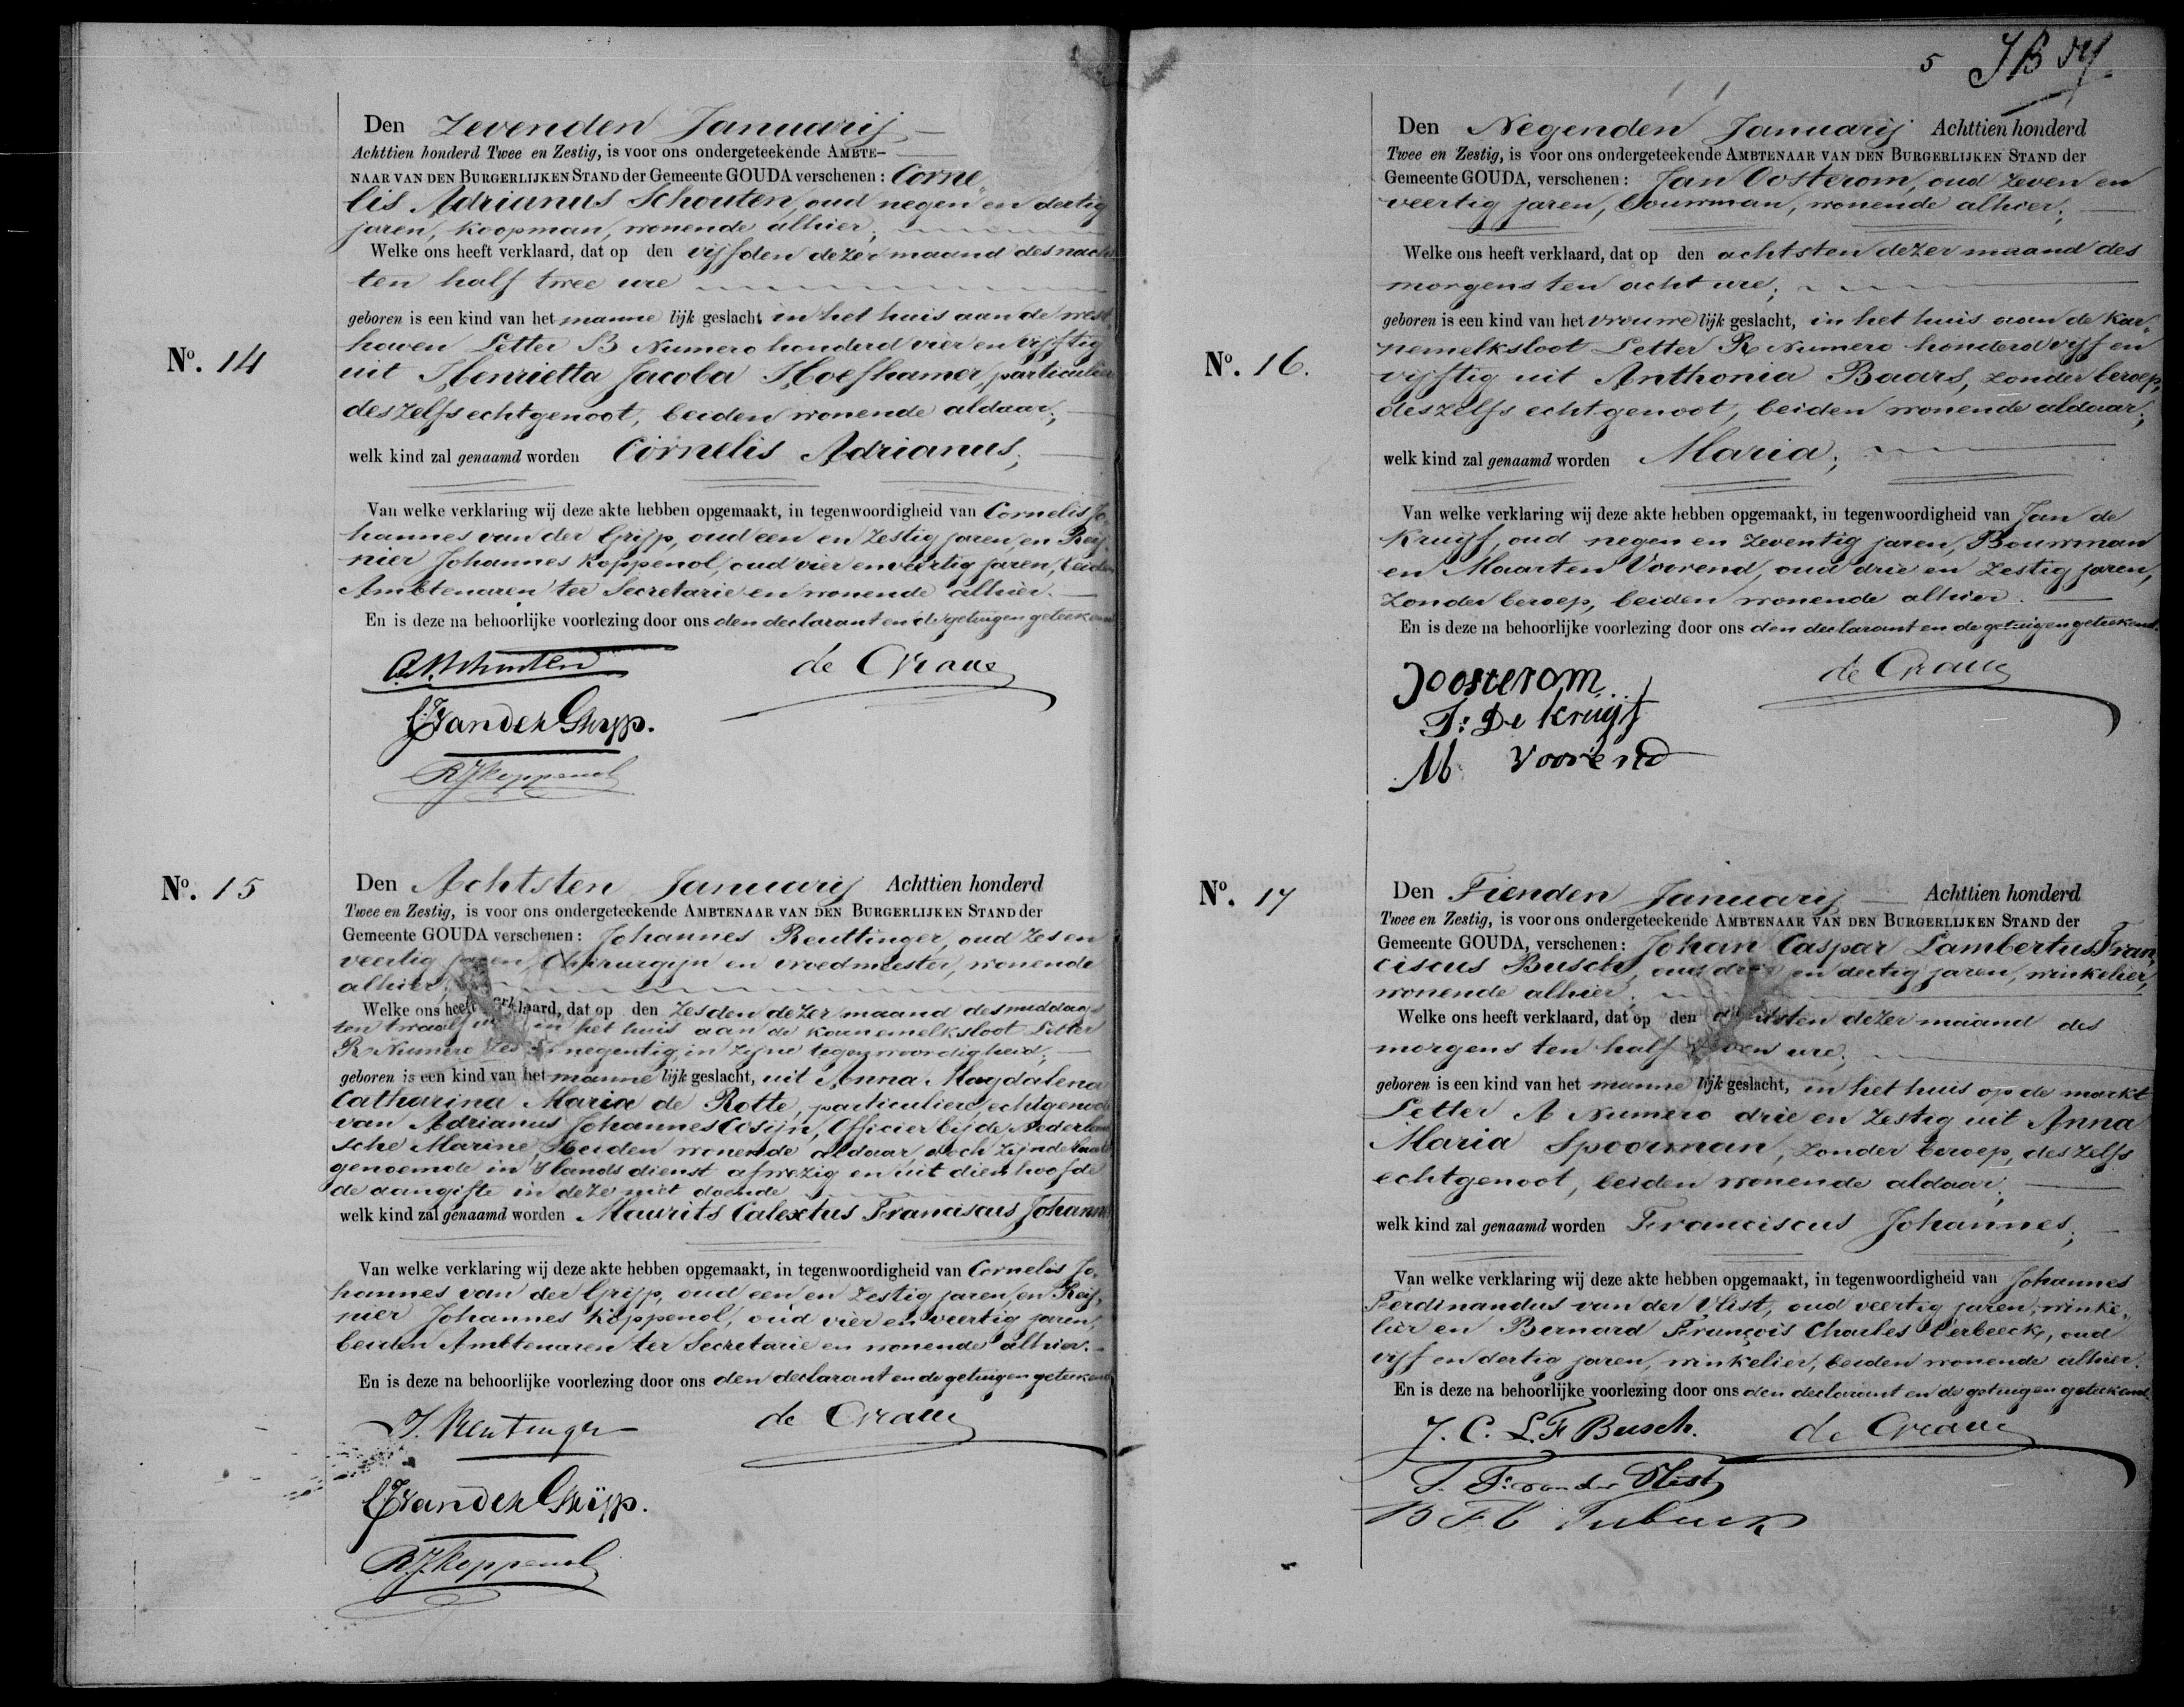 No. 14
Den Zevenden Januarij
Achttien honderd Twee en Zestig, is voor ons ondergeteekende AMBTE-
NAAR VAN DEN BURGERLIJKEN STAND der Gemeente GOUDA verschenen: Corne„
lis Adrianus Schouten, oud negen en dertig
jaren, koopman, wonende alhier;
Welke ons heeft verklaard, dat op den vijfden dezer maand des nachts
ten half twee ure
geboren is een kind van het mannelijk geslacht in het huis aan de west„
haven Letter B Numero honderd vier en vijftig
uit Henrietta Jacoba Hoefhamer, particuliere
deszelfs echtgenoot, beiden wonende aldaar;
welk kind zal genaamd worden Cornelis Adrianus;
Van welke verklaring wij deze akte hebben opgemaakt, in tegenwoordigheid van Cornelis Jo„
hannes van der Grijp, oud een en zestig jaren, en Reij„
nier Johannes Koppenol, oud vier en veertig jaren, beiden
Ambtenaren ter Secretarie en wonende alhier.
En is deze na behoorlijke voorlezing door ons den declarant en de getuigen geteekend
C.A. Schouten de Graue
CJ van der Grijp.
RJ Koppenol
No. 15
Den Achtsten Januarij Achttien honderd
Twee en Zestig, is voor ons ondergeteekende AMBTENAAR VAN DEN BURGERLIJKEN STAND der
Gemeente GOUDA verschenen: Johannes Reuttinger, oud zes en
veertig jaren, Chirurgijn en vroedmeester, wonende
alhier;
Welke ons heeft verklaard, dat op den zesden dezer maand des middags
ten twaalf in het huis aan de karnemelksloot Letter
R Numero zes negentig in zijne tegenwoordigheid;
geboren is een kind van het mannelijk geslacht, uit Anna Magdalena
Catharina Maria de Rotte, particuliere, echtgenoot
van Adrianus Johannes Cosijn, Officier bij de Nederland
sche Marine, beiden wonende aldaar, doch zijnde laatst
genoemde in 's lands dienst afwezig en uit dien hoofde
de aangifte in deze niet doende
welk kind zal genaamd worden Maurits Calextus Franciscus Johannes
Van welke verklaring wij deze akte hebben opgemaakt, in tegenwoordigheid van Cornelis Jo„
hannes van der Grijp, oud een en zestig jaren, en Reij„
nier Johannes Koppenol, oud vier en veertig jaren,
beiden Ambtenaren ter Secretarie en wonende alhier.
En is deze na behoorlijke voorlezing door ons den declarant en de getuigen geteekend
J. Reutinger de Graue
CJ van der Grijp.
RJ Koppenol
5
No. 16.
Den Negenden Januarij Achttien honderd
Twee en Zestig, is voor ons ondergeteekende AMBTENAAR VAN DEN BURGERLIJKEN STAND der
Gemeente GOUDA, verschenen: Jan Oosterom, oud zeven en
veertig jaren, bouwman, wonende alhier;
Welke ons heeft verklaard, dat op den achtsten dezer maand des
morgens ten acht ure;
geboren is een kind van het vrouwelijk geslacht, in het huis aan de kar„
nemelksloot Letter R Numero honderd vijf en
vijftig uit Anthonia Baars, zonder beroep,
deszelfs echtgenoot, beiden wonende aldaar;
welk kind zal genaamd worden Maria;
Van welke verklaring wij deze akte hebben opgemaakt, in tegenwoordigheid van Jan de
Kruijf, oud negen en zeventig jaren, Bouwman
en Maarten Voorend, oud drie en zestig jaren,
zonder beroep, beiden wonende alhier.
En is deze na behoorlijke voorlezing door ons den declarant en de getuigen geteekend.
J Oosterom de Graue
J: De Kruijf
M Voorend
No. 17
Den Tienden Januarij Achttien honderd
Twee en Zestig, is voor ons ondergeteekende AMBTENAAR VAN DEN BURGERLIJKEN STAND der
Gemeente GOUDA, verschenen: Johan Caspar Lambertus Fran„
ciscus Busch, oud drie en dertig jaren, winkelier,
wonende alhier;
Welke ons heeft verklaard, dat op den dezer maand des
morgens ten half ure;
geboren is een kind van het mannelijk geslacht, in het huis op de markt
Letter A Numero drie en zestig uit Anna
Maria Spoorman, zonder beroep, deszelfs
echtgenoot, beiden wonende aldaar;
welk kind zal genaamd worden Franciscus Johannes;
Van welke verklaring wij deze akte hebben opgemaakt, in tegenwoordigheid van Johannes
Ferdinandus van der Vlist, oud veertig jaren, winke„
lier en Bernard François Charles oud
vijf en dertig jaren, winkelier, beiden wonende alhier.
En is deze na behoorlijke voorlezing door ons den declarant en de getuigen geteekend.
J. C. L. F Busch. de Graue
J. F: van der Vlist
B F C